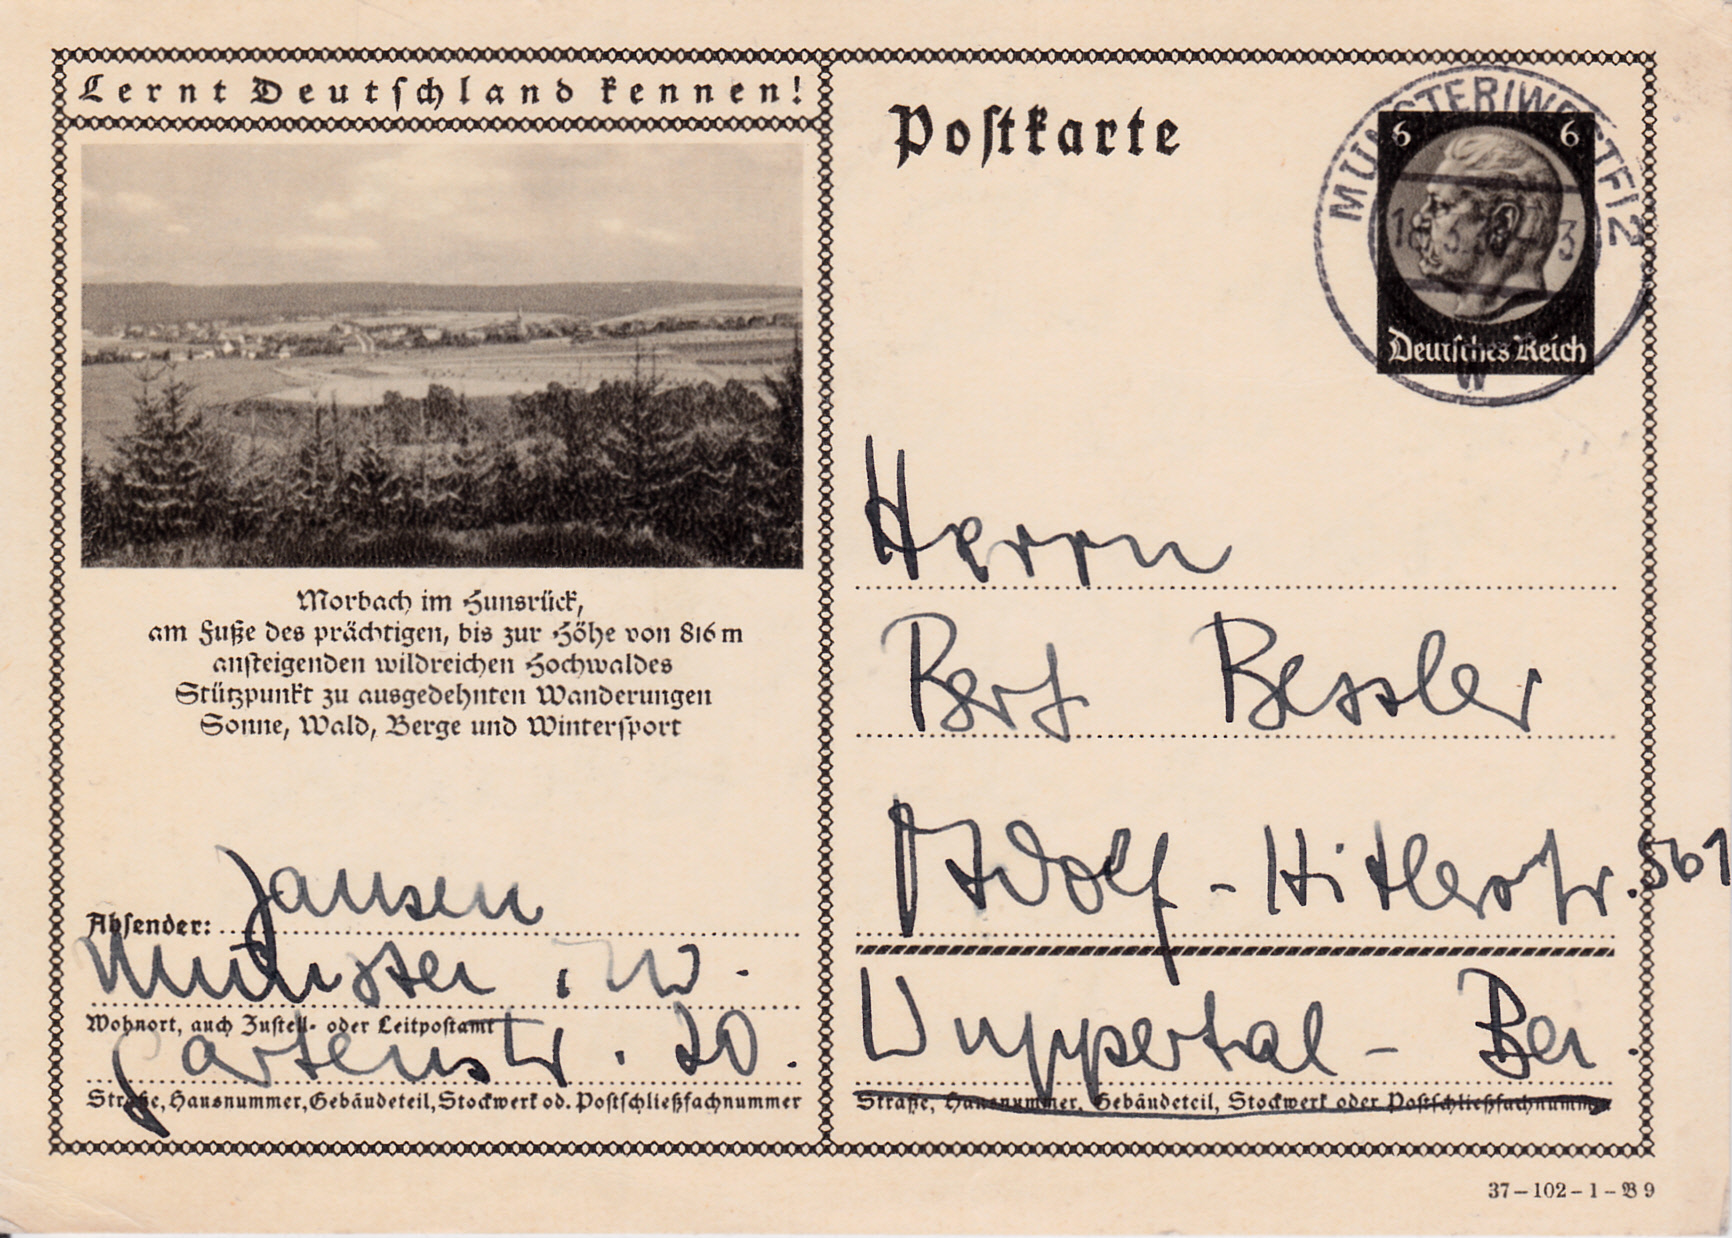 Lernt Deutschland kennen!
Morbach im Hunsrück,
am Fuße des prächtigen, bis zur Höhe von 816 m
ansteigenden wildreichen Hochwaldes
Stützpunkt zu ausgedehnten Wanderungen
Sonne, Wald, Berge und Wintersport
Absender: Jansen
Münster i. W.
Wohnort, auch Zustell- oder Leitpostamt
Gartenstr. 20.
Straße, Hausnummer, Gebäudeteil, Stockwerk od. Postschließfachnummer
Postkarte
MÜNSTER (WESTF) 2
6 6
Deutsches Reich
W
Herrn
Bert Bessler
Adolf-Hitlerstr. 561
Wuppertal - Bar.
Straße, Hausnummer, Gebäudeteil, Stockwerk oder Postschließfachnummer
37-102-1-B 9